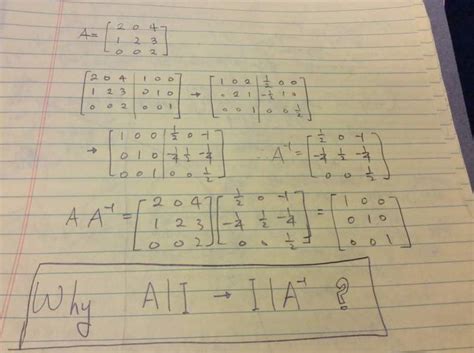 A = [ 2 0 4
1 2 3
0 0 2 ]
[ 2 0 4 | 1 0 0
1 2 3 | 0 1 0
0 0 2 | 0 0 1 ] → [ 1 0 2 | 1/2 0 0
0 2 1 | -1/2 1 0
0 0 1 | 0 0 1/2 ]
→ [ 1 0 0 | 1/2 0 -1
0 1 0 | -1/4 1/2 -1/4
0 0 1 | 0 0 1/2 ] ∴ A⁻¹ = [ 1/2 0 -1
-1/4 1/2 -1/4
0 0 1/2 ]
A A⁻¹ = [ 2 0 4
1 2 3
0 0 2 ] [ 1/2 0 -1
-1/4 1/2 -1/4
0 0 1/2 ] = [ 1 0 0
0 1 0
0 0 1 ]
Why A|I → I|A⁻¹ ?